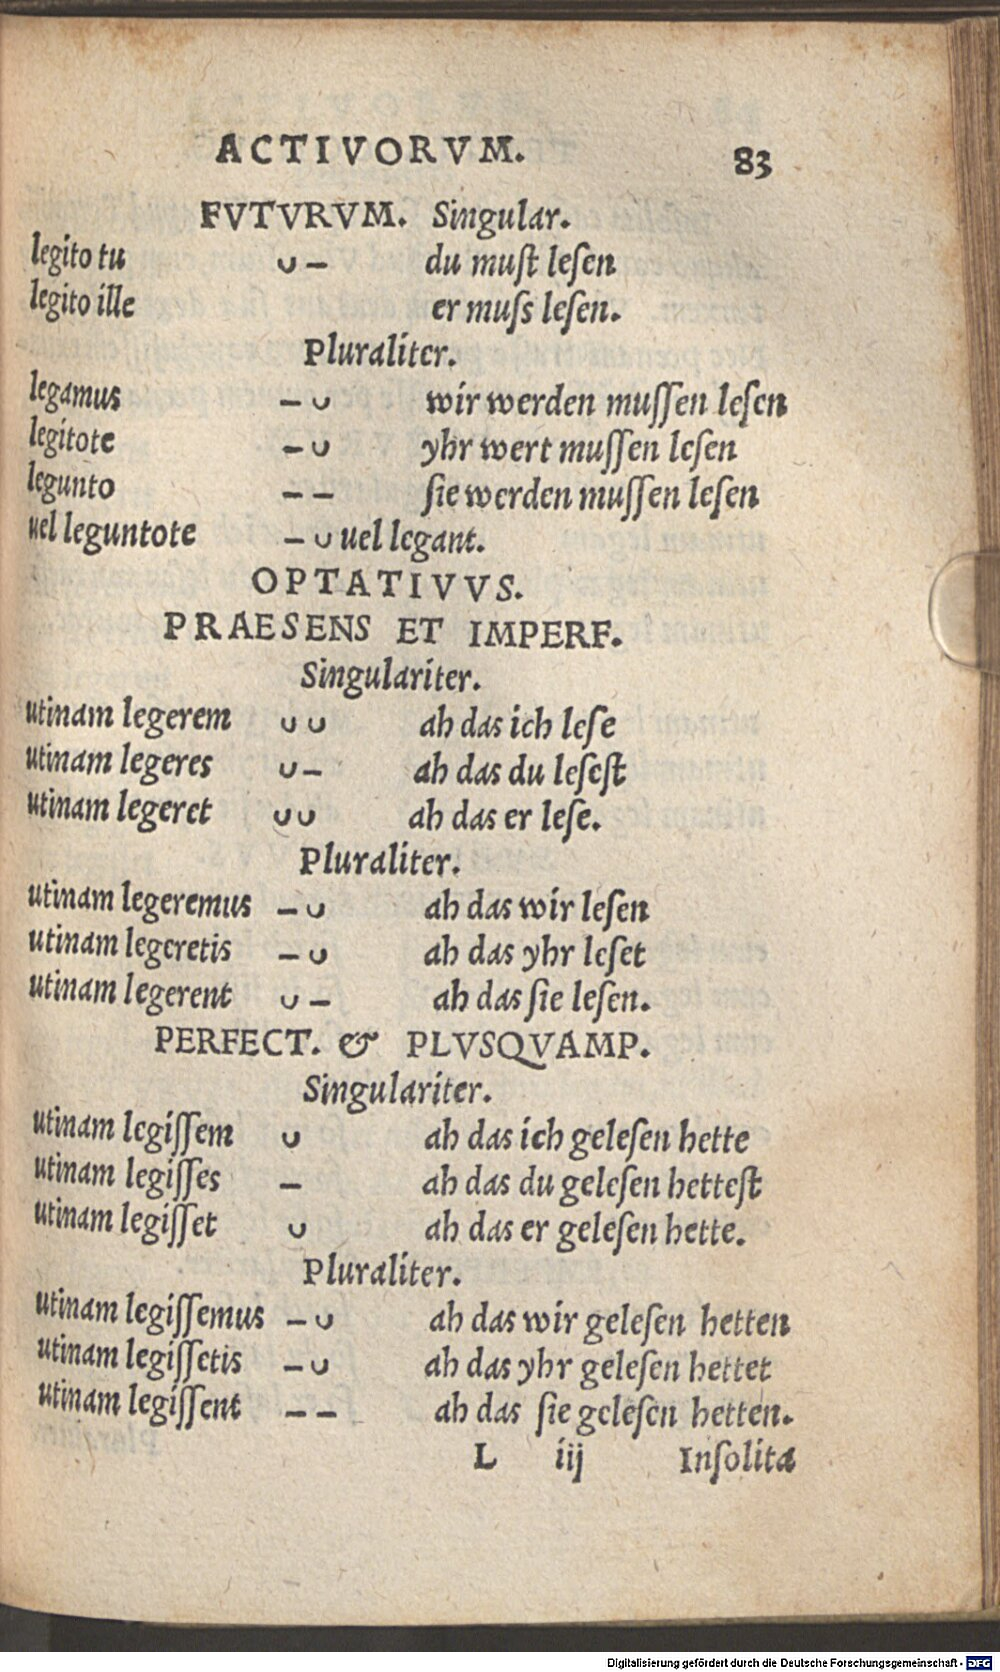 ACTIVORVM. 83
FVTVRVM. Singular.
legito tu ∪ – du muſt leſen
legito ille er muſs leſen.
Pluraliter.
legamus – ∪ wir werden muſſen leſen
legitote – ∪ yhr wert muſſen leſen
legunto – – ſie werden muſſen leſen
uel leguntote – ∪ uel legant.
OPTATIVVS.
PRAESENS ET IMPERF.
Singulariter.
utinam legerem ∪ ∪ ah das ich leſe
utinam legeres ∪ – ah das du leſeſt
utinam legeret ∪ ∪ ah das er leſe.
Pluraliter.
utinam legeremus – ∪ ah das wir leſen
utinam legeretis – ∪ ah das yhr leſet
utinam legerent ∪ – ah das ſie leſen.
PERFECT. & PLVSQVAMP.
Singulariter.
utinam legiſſem ∪ ah das ich geleſen hette
utinam legiſſes – ah das du geleſen hetteſt
utinam legiſſet ∪ ah das er geleſen hette.
Pluraliter.
utinam legiſſemus – ∪ ah das wir geleſen hetten
utinam legiſſetis – ∪ ah das yhr geleſen hettet
utinam legiſſent – – ah das ſie geleſen hetten.
L iij Inſolita
Digitalisierung gefördert durch die Deutsche Forschungsgemeinschaft - DFG